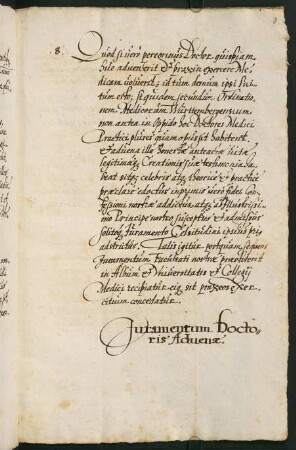 8. Quod si vero peregrinus Doctor quispiam
huc advenerit et praxin exercere Me-
dicam voluerit: id tum demum ipsi lici-
tum esto, siquidem secundum Ordinatio-
nem Medicorum Würtembergensium
non antea in oppido hoc Doctores Medici
Practici plures quam opus sit habitent.
et advena ille honestae anteactae vitae,
legitimaeque Creationis suae testimonia ha-
beat sitque celebris atque theoricè et practicè
praeclarè edoctus inprimis verò fidei Con-
fessioni nostrae addictus, atque ab Illustrissi-
mo Principe nostro susceptus et admissus
solitoque Juramento Celsitudini ipsius
adstrictus. Talis igitur postquam
Juramentum Facultati nostrae praestiterit
in Album et Universitatis et Collegij
Medici recipiatur, eique sit praxeos exer-
citium concessatur.
Juramentum Docto-
ris Advenae.